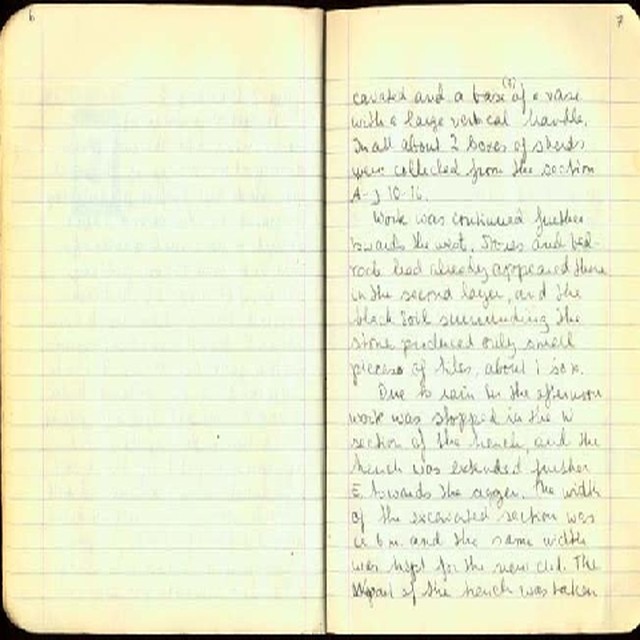 6
7
cavated and a base (?) of a vase
with a large vertical handle.
In all about 2 boxes of sherds
were collected from the section
A-J 10-16.
Work was continued further
towards the west. Stones and bed-
rock had already appeared there
in the second layer, and the
black soil surrounding the
stone produced only small
pieces of tiles, about 1 box.
Due to rain in the afternoon
work was stopped in the W
section of the trench, and the
trench was extended further
E towards the agger. The width
of the excavated section was
6 m. and the same width
was kept for the new cut. The
part of the trench was taken